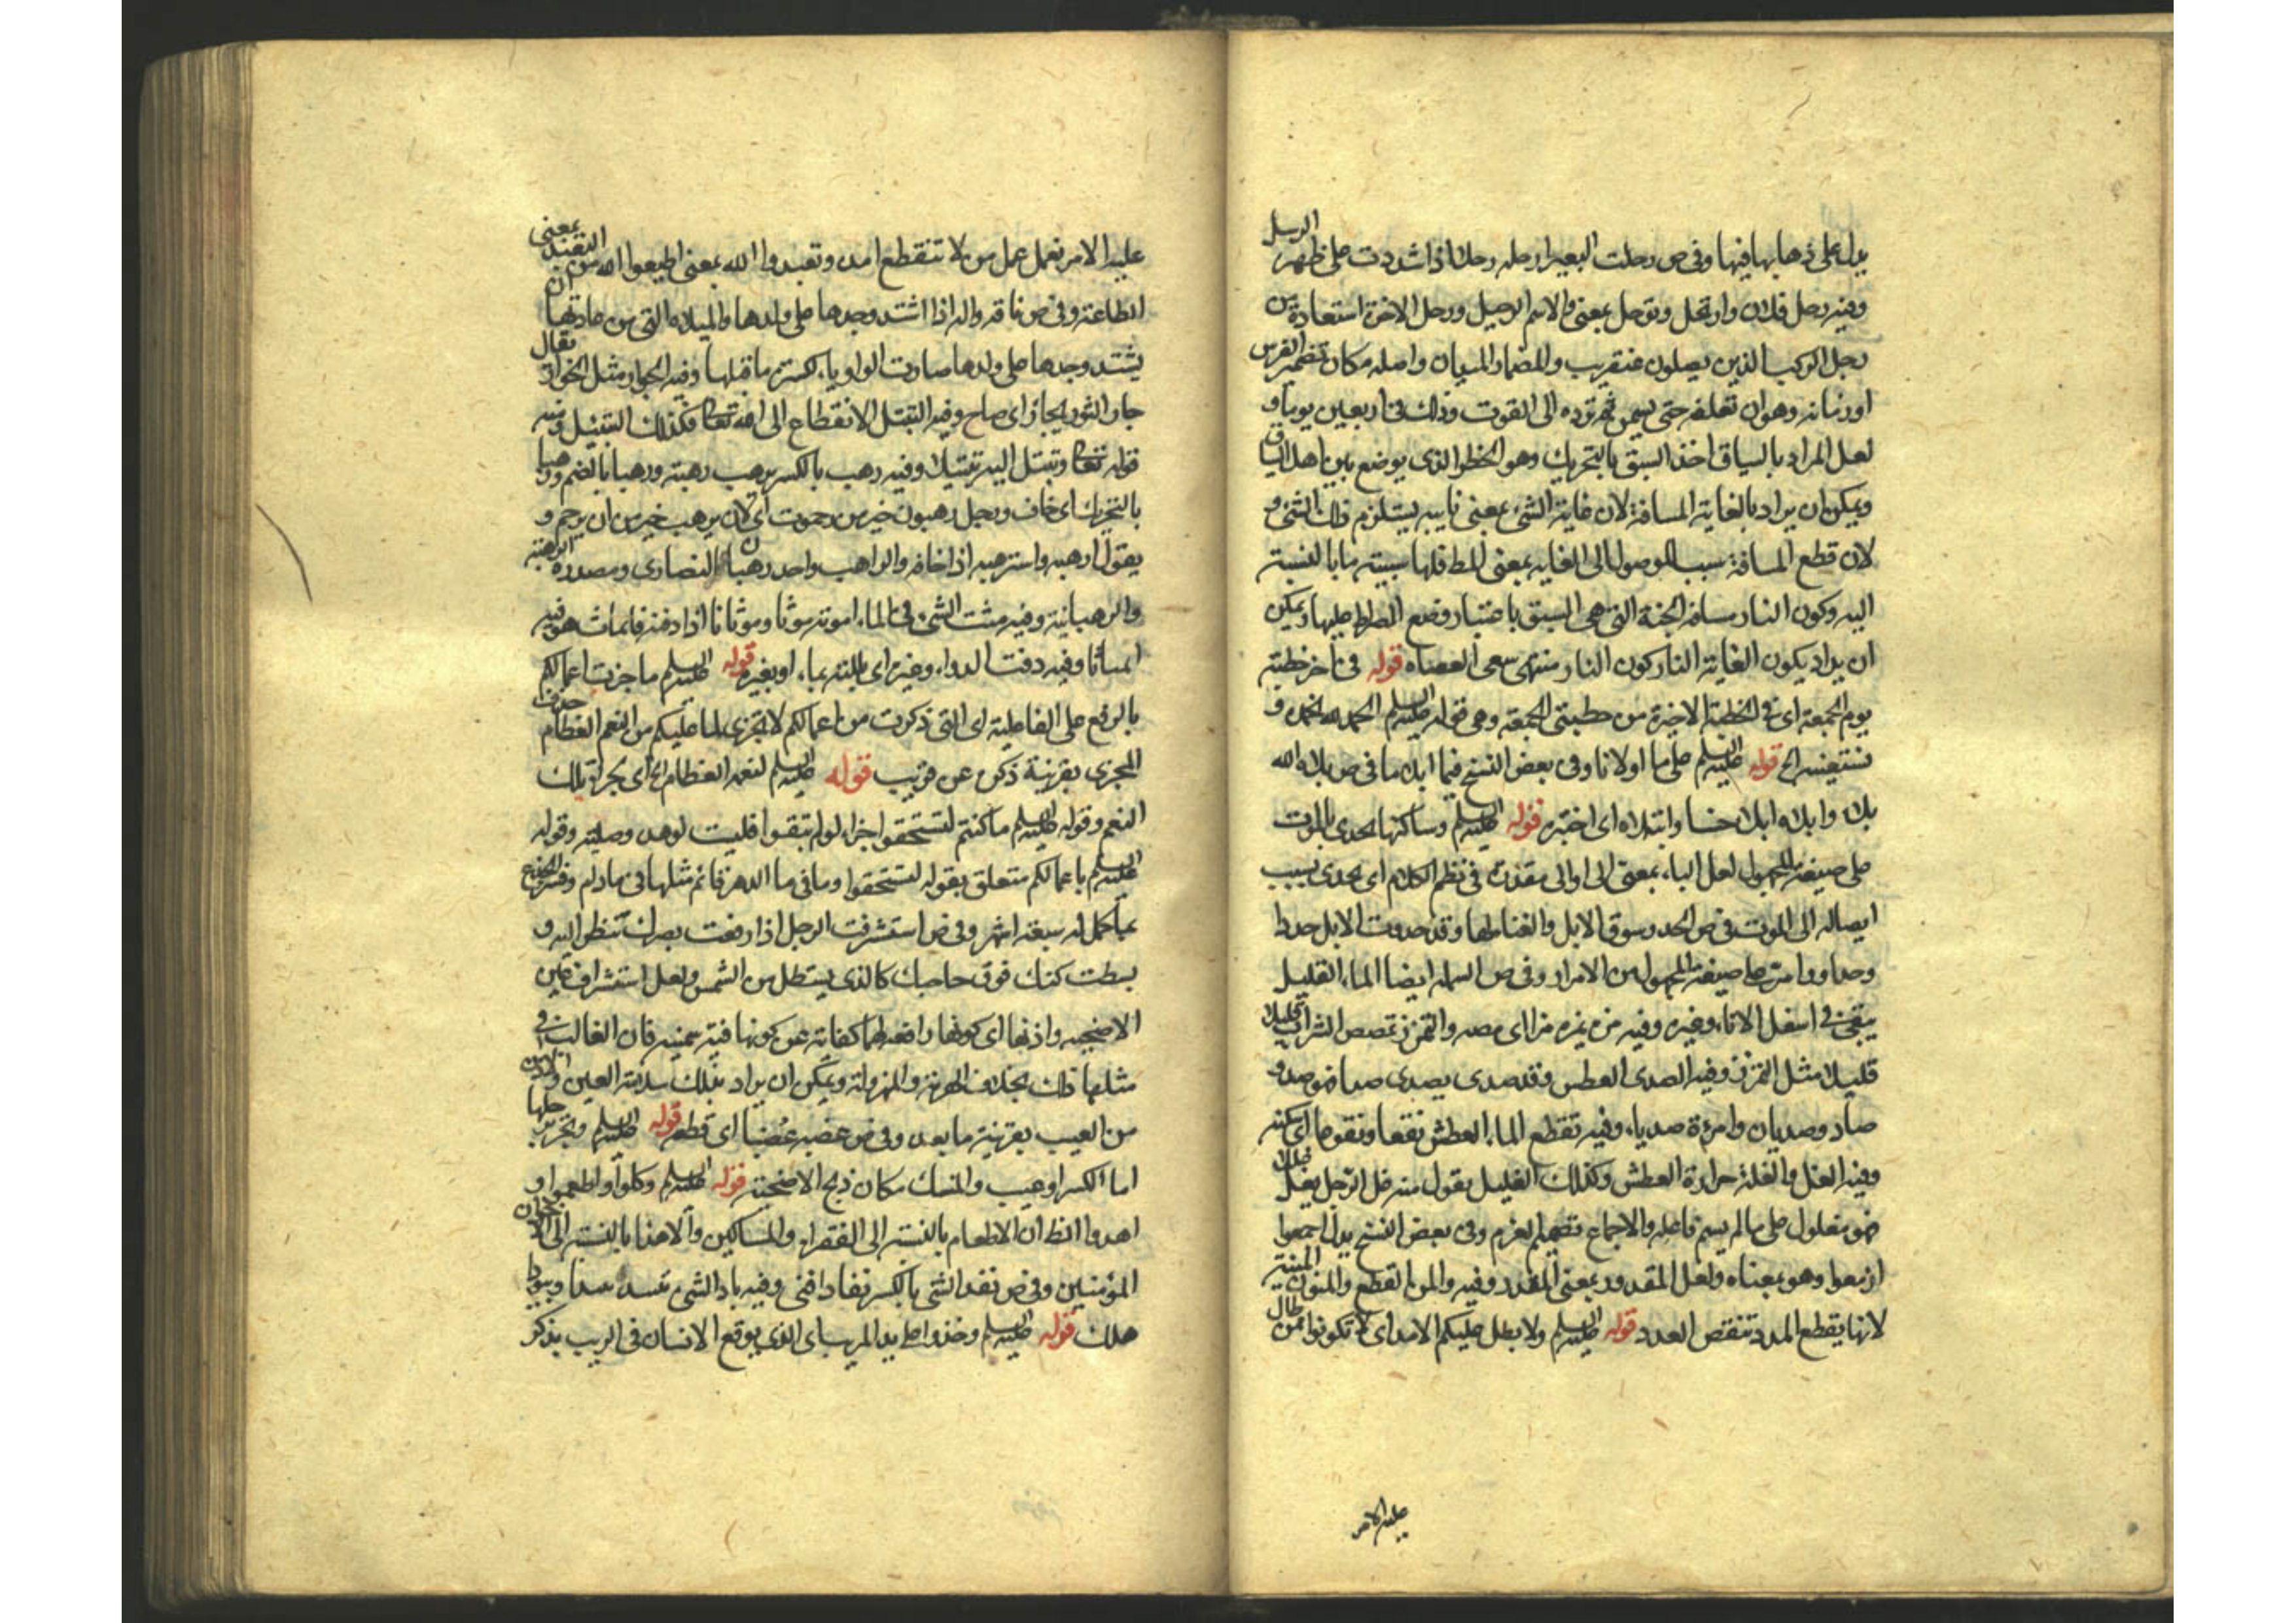 يدل على ذهابها فيها وفي ص رحلت البعير ارحله رحلا اذا شددت على ظهره الرحل
وفيه رحل فلان وارتحل وترحل بمعنى والاسم الرحيل ورحل الاخرة استعارة من
رحل الركب الذين يصلون عنقريب والمضمار الميدان واصله مكان تضمير الفرس
او زمانه وهو ان تعلفه حتى يسمن ثم ترده الى القوت وذلك في اربعين يوما و
لعل المراد بالسباق اخذ السبق بالتحريك وهو الخطر الذي يوضع بين اهل السباق
ويمكن ان يراد بالغاية المسافة لان غاية الشيء بمعنى يستلزم ذلك الشيء و
لان قطع المسافة سبب للوصول الى الغاية بمعنى فلها سببية ما بالنسبة
اليه وكون النار مسافة الجنة التي هي السبق باعتبار وضع الصراط عليها ويمكن
ان يراد بكون الغاية النار كون النار منتهى سعى العصاة قوله في اخر خطبته
يوم الجمعة اي في الخطبة الاخيرة من خطبتي الجمعة وهي قوله عليه السلم الحمد لله نحمده و
نستعينه الخ قوله عليه السلم على ما اولانا وفي بعض النسخ فيما ابلانا في ص بلاه الله
بلاء وابلاه ابلاء حسنا وابتلاه اي اختبره قوله عليه السلم وساكنها يحدى بالموت
على صيغة المجهول لعل الباء بمعنى الى او الى مقدرة في نظم الكلام اي يحدى بسبب
ايصاله الى الموت في ص الحدو سوق الابل والغناء لها وقد حدوت الابل حدوا
وحداء وامرت على صيغة المجهول من الامرار وفي ص السملة ايضا الماء القليل
يبقى في اسفل الاناء وغيره وفيه مزه يمزه مزا اي مصه والتمزز تمصص الشراب قليلا
قليلا مثل التمزز وفيه الصدى العطش وقد صدى يصدى صدا فهو صد و
صاد وصديان وامرءة صديا، وفيه نقع الماء العطش نقعا ونقوعا اي سكنه
وفيه الغل والغلة حرارة العطش وكذلك الغليل يقول منه غل الرجل يغل غللا
فهو مغلول على ما لم يسم فاعله والاجماع تصميم العزم وفي بعض النسخ بدل اجمعوا
ازمعوا وهو بمعناه ولعل المقدور بمعنى المقدر وفيه والمن القطع والمنون المنية
لانها يقطع المدد تنقص العدد قوله عليه السلم ولا يطل عليكم الامد اي لا تكونوا ممن طال
عليه الامر
عليه الامر نعمل عمل من لا تنقطع امده وتعبدوا الله بمعنى اطيعوا الله من التعبد بمعنى
الطاعة وفي ص ناقة واله اذا اشتد وجدها على ولدها والميلاه التي من عادتها ان
يشتد وجدها على ولدها صارت الواو ياء لكسرة ما قبلها وفيه الجوار مثل الخوار يقال
جار الثور يجار اي صاح وفيه التبتل الانقطاع الى الله تعا وكذلك التبتيل ومنه
قوله تعا وتبتل اليه تبتيلا وفيه رهب بالكسر يرهب رهبة ورهبا بالضم ورهبا
بالتحريك اي خاف ورجل رهبوت خير من رحموت اي لان يرهب خير من ان يرحم و
يقول ارهبه واسترهبه اذا خافه والراهب واحد رهبان النصارى ومصدره الرهبة
والرهبانية وفيه مثت الشيء في الماء اموثه موثا وموثانا اذا دفته فانماث هو فيه
انمياثا وفيه دفت الدواء وغيره اي بللته بماء او بغيره قوله عليه السلم ما جزت اعمالكم
بالرفع على الفاعلية اي التي ذكرت من اعمالكم لا تجزى لما عليكم من النعم العظام حذف
المجزى بقرينة ذكره عن قريب قوله عليه السلم لنعمه العظام الخ اي بجزاء تلك
النعم وقوله عليه السلم ما كنتم لتستحقوا جزاء لو لم تبقوا فليت لوهد وصلية وقوله
عليه السلم باعمالكم متعلق بقوله لتستحقوا وما في ما الدهر قائم مثلها في ما دام وفسر الجذع
بما كمل له سبعة اشهر وفي ص استشرفت الرجل اذا رفعت بصرك تنظر اليه و
بسطت كفك فوق حاجبك كالذي يستظل من الشمس ولعل استشراف عين
الاضحية واذنها اي كونها رافعة لهما كفاية عن كونها فتية سمينة فان الغالب في
مثلها ذلك بخلاف الهرمة والمهزولة ويمكن ان يراد بذلك سلامة العين والاذن
من العيب بقرينة ما بعده وفي ص عضبه عضبا اي قطعه قوله عليه السلم وتجر رجلها
اما الكسر او عيب والمنسك مكان ذبح الاضحية قوله عليه السلم وكلوا واطعموا و
اهدوا الظ ان الاطعام بالنسبة الى الفقراء والمساكين والاهداء بالنسبة الى الاخوان
المؤمنين وفي ص نفد الشيء بالكسر نفادا فنى وفيه باد الشيء يبيد بيدا وبيودا
هلك قوله عليه السلم وخذوا على يد المريب اي الذي يوقع الانسان في الريب يذكر